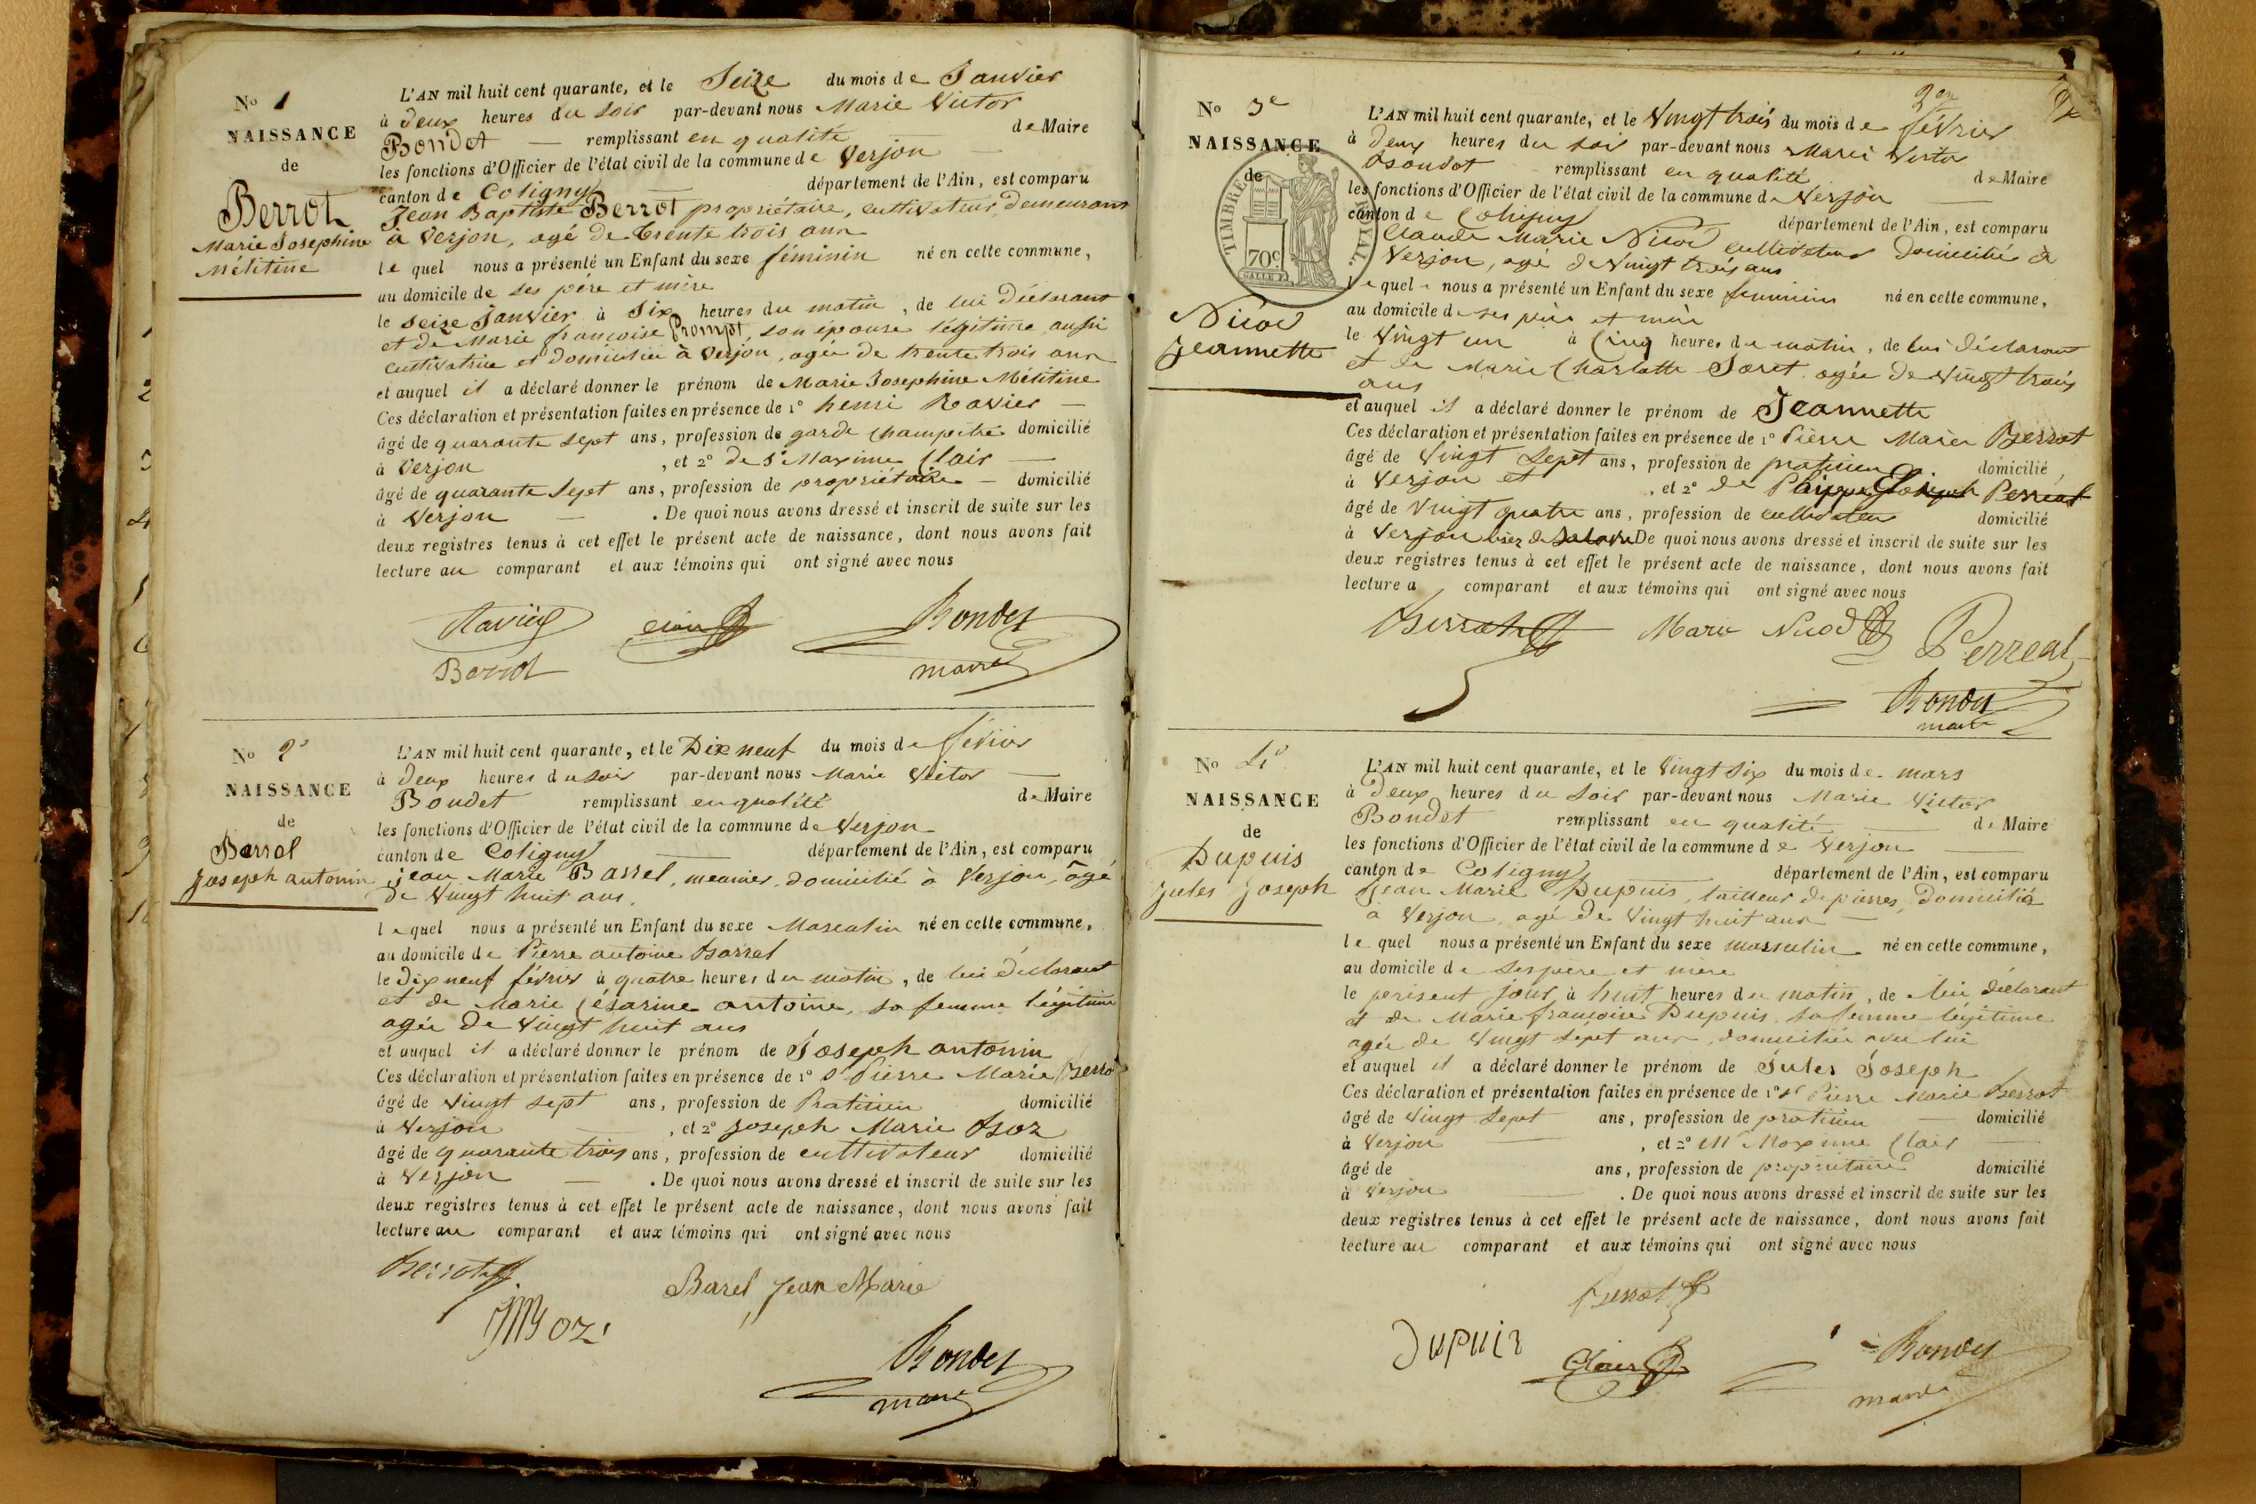 No 1
NAISSANCE
de
Berrot
Marie Josephine
Mélitine
L'AN mil huit cent quarante, et le Seize du mois de Janvier
à deux heures du soir par-devant nous Marie Victor
Bondet — remplissant en qualité de Maire
les fonctions d'Officier de l'état civil de la commune de Verjon —
canton de Coligny — département de l'Ain, est comparu
Jean Baptiste Berrot propriétaire, cultivateur, demeurant
à Verjon, agé de trente trois ans
lequel nous a présenté un Enfant du sexe féminin né en cette commune,
au domicile de ses père et mère
le seize Janvier à Six heures du matin, de lui déclarant
et de Marie françoise Prompt, son épouse légitime aussi
cultivatrice et domiciliée à Verjon, agée de trente trois ans
et auquel il a déclaré donner le prénom de Marie Josephine Mélitine
Ces déclaration et présentation faites en présence de 1° henri Ravier —
âgé de quarante sept ans, profession de garde champetre domicilié
à Verjon, et 2° de Sr Maxime Clair —
âgé de quarante Sept ans, profession de propriétaire — domicilié
à Verjon — . De quoi nous avons dressé et inscrit de suite sur les
deux registres tenus à cet effet le présent acte de naissance, dont nous avons fait
lecture au comparant et aux témoins qui ont signé avec nous
Ravier Clair Bondet
Berrot maire
No 2e
NAISSANCE
de
Barrel
Joseph antonin
L'AN mil huit cent quarante, et le Dix neuf du mois de fevrier
à deux heures du soir par-devant nous Marie Victor —
Bondet remplissant en qualité de Maire
les fonctions d'Officier de l'état civil de la commune de Verjon
canton de Coligny — département de l'Ain, est comparu
jean Marie Barrel, meunier, domicilié à Verjon, âgé
de Vingt huit ans.
lequel nous a présenté un Enfant du sexe Masculin né en cette commune,
au domicile de Pierre antoine Barrel
le dix neuf février à quatre heures du matin, de lui déclarant
et de Marie Césarine antoine, sa femme légitime
agée de Vingt huit ans
et auquel il a déclaré donner le prénom de Joseph antonin
Ces déclaration et présentation faites en présence de 1° Sr Pierre Marie Berrot
âgé de Vingt sept ans, profession de Praticien domicilié
à Verjon —, et 2° Joseph Marie Boz
âgé de quarante trois ans, profession de cultivateur domicilié
à Verjon — . De quoi nous avons dressé et inscrit de suite sur les
deux registres tenus à cet effet le présent acte de naissance, dont nous avons fait
lecture au comparant et aux témoins qui ont signé avec nous
Berrot Barel Jean Marie
Bondet
maire
No 3e
NAISSANCE
de
TIMBRE
70c
Nicod
Jeannette
L'AN mil huit cent quarante, et le Vingt trois du mois de février
à deux heures du soir par-devant nous Marie Victor
Bondet remplissant en qualité de Maire
les fonctions d'Officier de l'état civil de la commune de Verjon —
canton de Coligny département de l'Ain, est comparu
Claude Marie Nicod cultivateur domicilié à
Verjon, agé de Vingt trois ans
lequel nous a présenté un Enfant du sexe feminin né en cette commune,
au domicile de ses père et mère
le Vingt un à Cinq heures du matin, de lui déclarant
et de Marie Charlotte Joret agée de Vingt trois
ans
et auquel il a déclaré donner le prénom de Jeannette
Ces déclaration et présentation faites en présence de 1° Pierre Marie Berrot
âgé de Vingt Sept ans, profession de praticien domicilié
à Verjon et, et 2° de Joseph Perréal
âgé de Vingt quatre ans, profession de cultivateur domicilié
à Verjon De quoi nous avons dressé et inscrit de suite sur les
deux registres tenus à cet effet le présent acte de naissance, dont nous avons fait
lecture a comparant et aux témoins qui ont signé avec nous
Berrot Marie Nicod Perreal
Bondet
maire
No 4e
NAISSANCE
de
Dupuis
Jules Joseph
L'AN mil huit cent quarante, et le Vingt Six du mois de mars
à deux heures du soir par-devant nous Marie Victor
Bondet remplissant en qualité — de Maire
les fonctions d'Officier de l'état civil de la commune de Verjon —
canton de Coligny département de l'Ain, est comparu
Jean Marie Dupuis, tailleur de pierres, domicilié
à Verjon, agé de Vingt huit ans —
lequel nous a présenté un Enfant du sexe masculin né en cette commune,
au domicile de ses père et mère
le présent jour, à huit heures du matin, de lui déclarant
et de Marie françoise Dupuis sa femme légitime
agée de Vingt Sept ans, domiciliée avec lui
et auquel il a déclaré donner le prénom de Jules Joseph
Ces déclaration et présentation faites en présence de 1° Sr Pierre Marie Berrot
âgé de Vingt Sept ans, profession de praticien — domicilié
à Verjon —, et 2° Mr Maxime Clair —
âgé de ans, profession de propriétaire domicilié
à Verjon — . De quoi nous avons dressé et inscrit de suite sur les
deux registres tenus à cet effet le présent acte de naissance, dont nous avons fait
lecture au comparant et aux témoins qui ont signé avec nous
Berrot
Dupuis Clair Bondet
maire